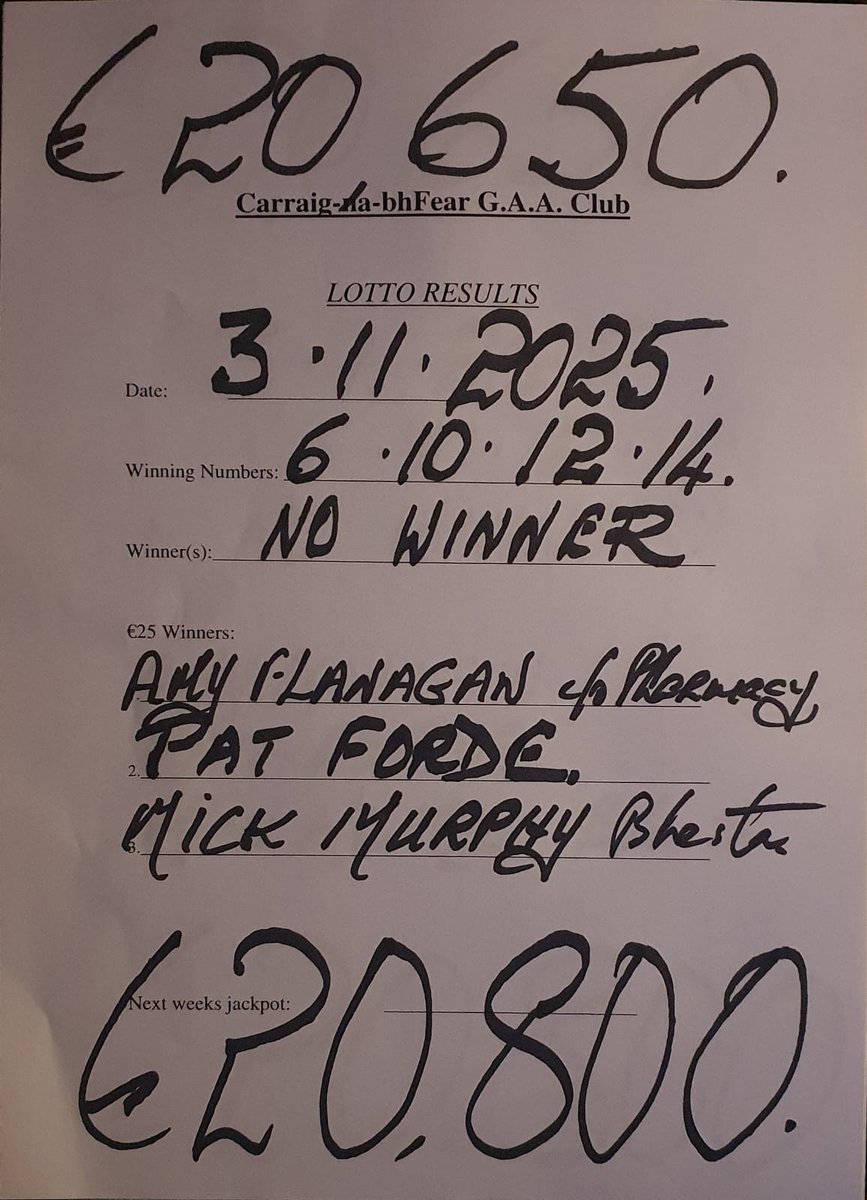 €20,650.
Carraig-na-bhFear G.A.A. Club
LOTTO RESULTS
Date: 3·11·2025.
Winning Numbers: 6·10·12·14.
Winner(s): NO WINNER
€25 Winners:
AMY FLANAGAN c/o Pharmacy
2. PAT FORDE.
3. MICK MURPHY
Next weeks jackpot:
€20,800.